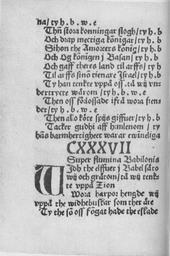 na/ ty h. b. w. e
Thñ stora konningar slogh/ ty h. b.
Och drap mectiga königar/ ty h. b.
Sihon the Amorers könig/ ty h b.
Och Og königen j Basan/ ty h. b.
Och gaff theras land til arffs/ ty h.
Til arffs sinō tienare Israel/ ty h. b.
Ty han tencte vppå oss. tå wij vn
dertryctte wårom/ ty h. b. w.
Then oss förlossade ifrå wora fiens
der/ ty h. b. w.
Then allo kött spijs giffuer/ ty h. b
Tacker gudhi aff himlenom/ ty
hans barmhertigheet warar ewinneliga
CXXXVII
Super flumina Babilonis
Widh the elffuer j Babel såto
wij och gråtom/ tå wij tenck
te vppå Zion
Wora harpor hengde wij
vppå the widhebuskar som ther äre
Ty the sō oss fögat hade theslades